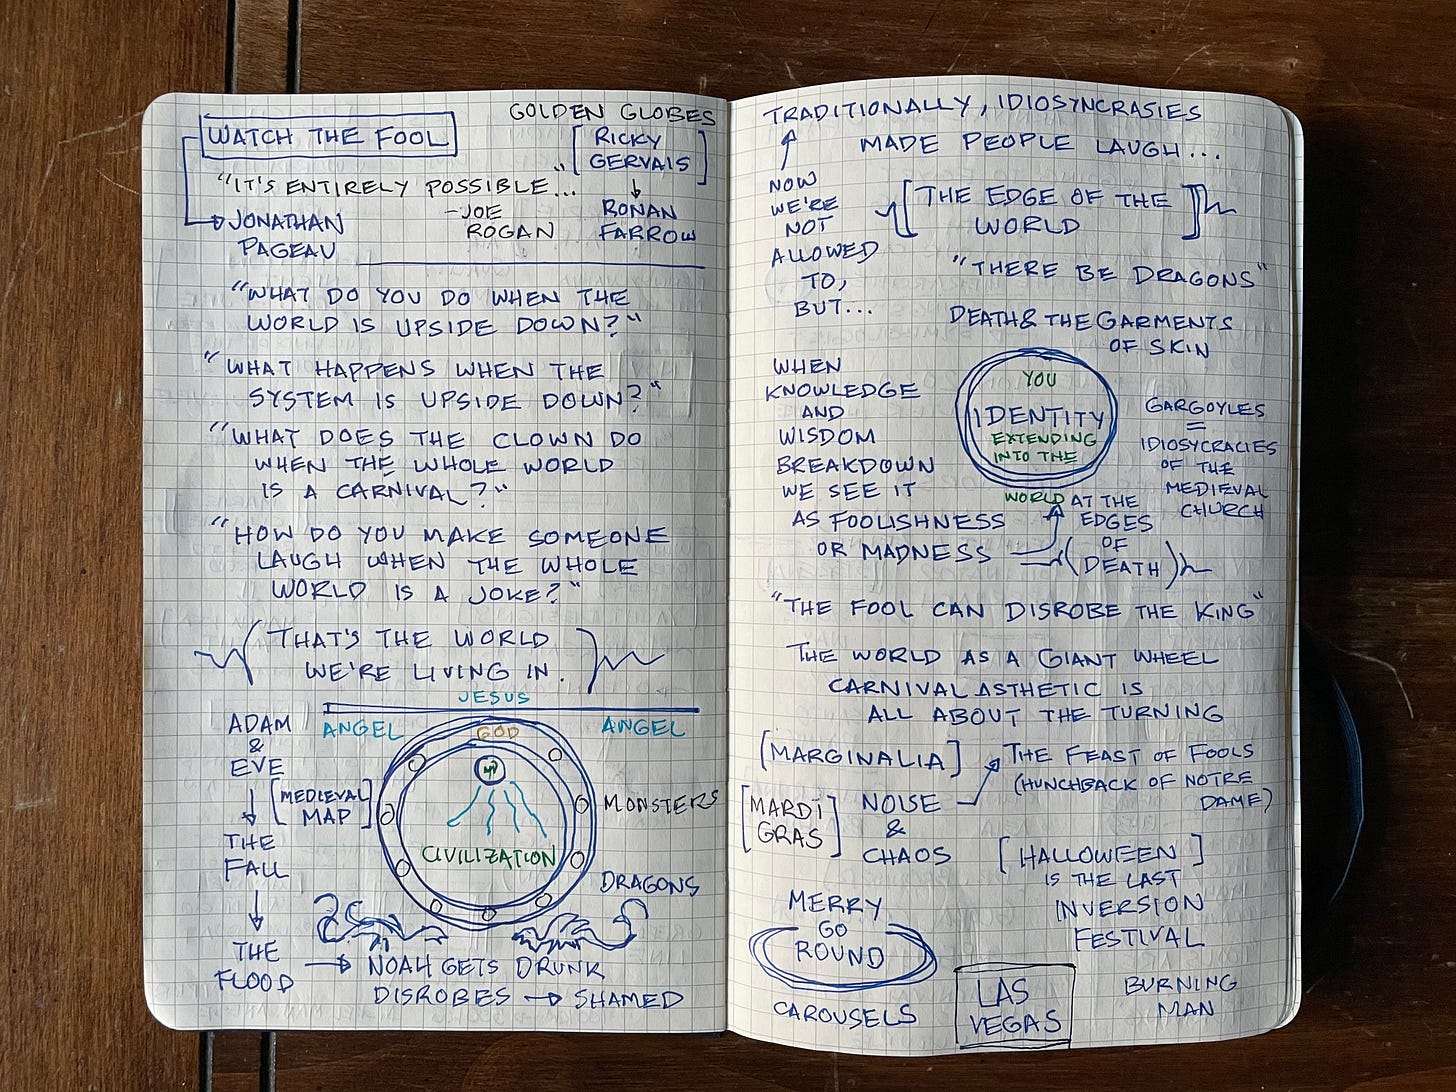 GOLDEN GLOBES
WATCH THE FOOL
[RICKY
GERVAIS]
"IT'S ENTIRELY POSSIBLE...“
-JOE
ROGAN
RONAN
FARROW
JONATHAN
PAGEAU
"WHAT DO YOU DO WHEN THE
WORLD IS UPSIDE DOWN?"
"WHAT HAPPENS WHEN THE
SYSTEM IS UPSIDE DOWN?"
"WHAT DOES THE CLOWN DO
WHEN THE WHOLE WORLD
IS A CARNIVAL?"
"HOW DO YOU MAKE SOMEONE
LAUGH WHEN THE WHOLE
WORLD IS A JOKE?"
(THAT'S THE WORLD
WE'RE LIVING IN.)
JESUS
ANGEL
GOD
ANGEL
ADAM
&
EVE
[MEDIEVAL
MAP]
THE
FALL
THE
FLOOD
CIVILIZATION
MONSTERS
DRAGONS
NOAH GETS DRUNK
DISROBES → SHAMED
TRADITIONALLY, IDIOSYNCRASIES
MADE PEOPLE LAUGH...
NOW
WE'RE
NOT
ALLOWED
TO,
BUT...
[THE EDGE OF THE
WORLD]
"THERE BE DRAGONS"
DEATH & THE GARMENTS
OF SKIN
WHEN
KNOWLEDGE
AND
WISDOM
BREAKDOWN
WE SEE IT
AS FOOLISHNESS
OR MADNESS
YOU
IDENTITY
EXTENDING
INTO THE
WORLD AT THE
EDGES
OF
(DEATH)
GARGOYLES
=
IDIOSYCRACIES
OF THE
MEDIEVAL
CHURCH
"THE FOOL CAN DISROBE THE KING"
THE WORLD AS A GIANT WHEEL
CARNIVAL ASTHETIC IS
ALL ABOUT THE TURNING
[MARGINALIA]
THE FEAST OF FOOLS
(HUNCHBACK OF NOTRE
DAME)
[MARDI
GRAS]
NOISE
&
CHAOS
[HALLOWEEN]
IS THE LAST
INVERSION
FESTIVAL
MERRY
GO
ROUND
CAROUSELS
LAS
VEGAS
BURNING
MAN